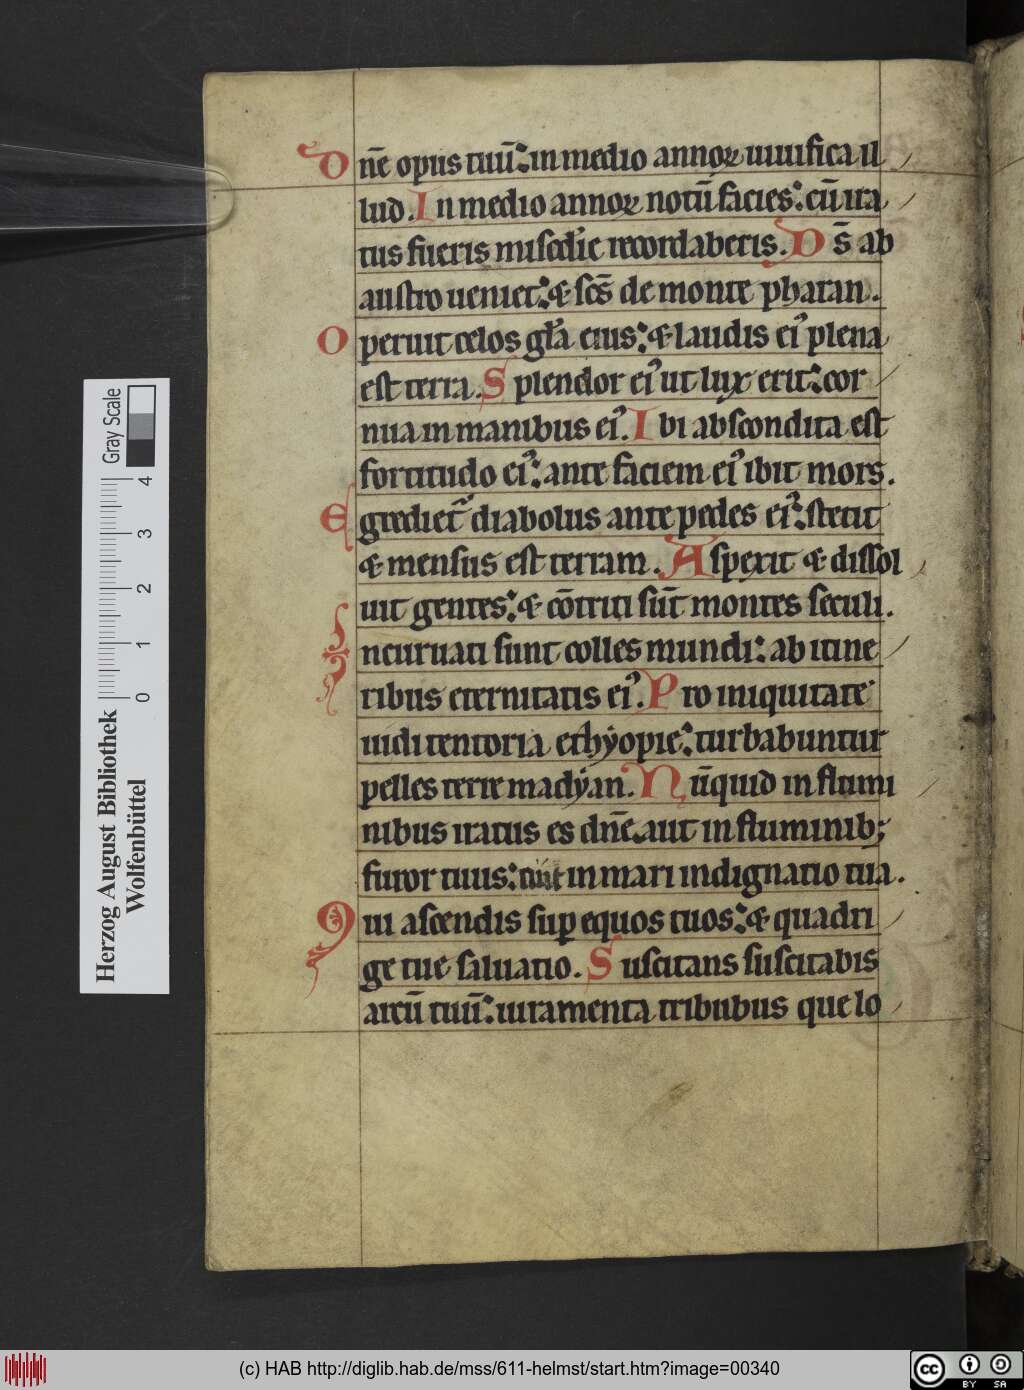 Dnē opus tuū: in medio annoꝝ uiuifica il
lud. In medio annoꝝ notū facies: cū ira
tus fueris miscđie recordaberis. Ds̄ ab
austro ueniet: & scs̄ de monte pharan.
Operuit celos gła eius: & laudis ei᾽ plena
est terra. Splendor ei᾽ ut lux erit: cor
nua in manibus ei᾽. Ibi abscondita est
fortitudo ei᾽: ante faciem ei᾽ ibit mors.
Egrediet᷑ diabolus ante pedes ei᾽: stetit
& mensus est terram. Aspexit & dissol
uit gentes: & cōtriti sūt montes seculi.
Incuruati sunt colles mundi: ab itine
ribus eternitatis ei᾽. Pro iniquitate
uidi tentoria ethyopie: turbabuntur
pelles terre madyan. Nūquid in flumi
nibus iratus es dn̄e. aut in fluminib;
furor tuus: in mari indignatio tua.
Qui ascendis sup equos tuos: & quadri
ge tue saluatio. Suscitans suscitabis
arcū tuū: iuramenta tribubus que lo
Herzog August Bibliothek
Wolfenbüttel
Gray Scale
0 1 2 3 4
(c) HAB http://diglib.hab.de/mss/611-helmst/start.htm?image=00340
cc BY SA